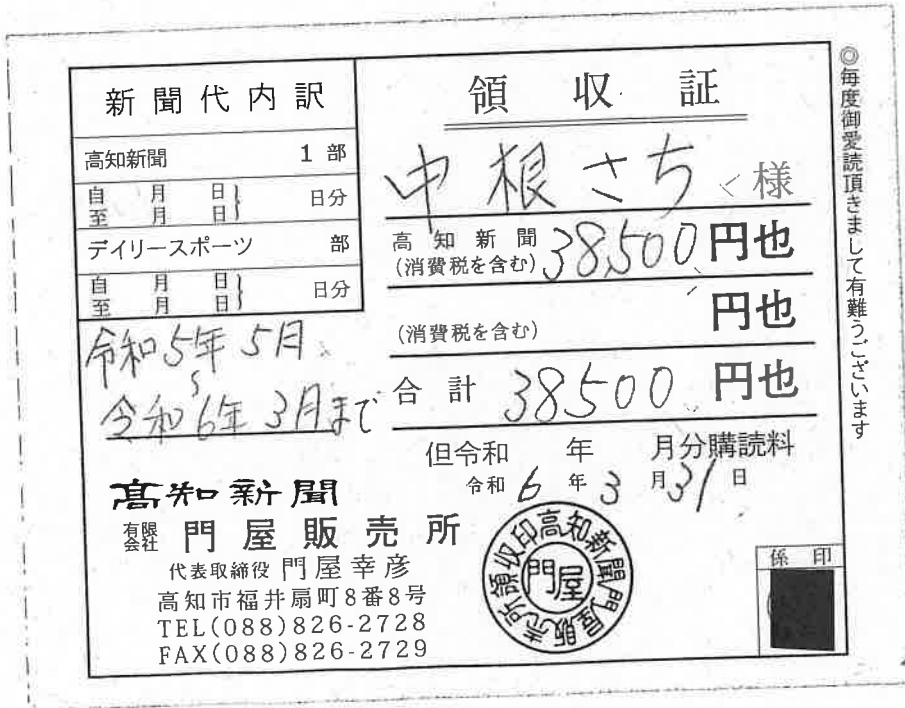 新聞代内訳
高知新聞 1部
自 月 日
至 月 日
日分
デイリースポーツ 部
自 月 日
至 月 日
日分
令和5年5月
〜
令和6年3月まで
領収証
中根さち 様
高知新聞
(消費税を含む) 38,500 円也
(消費税を含む) 円也
合計 38500 円也
但令和 年 月分購読料
令和 6 年 3 月 31 日
高知新聞
有限会社 門屋販売所
代表取締役 門屋幸彦
高知市福井扇町8番8号
TEL(088)826-2728
FAX(088)826-2729
高知新聞門屋販売所領収印
門屋
係印
◎毎度御愛読頂きまして有難うございます